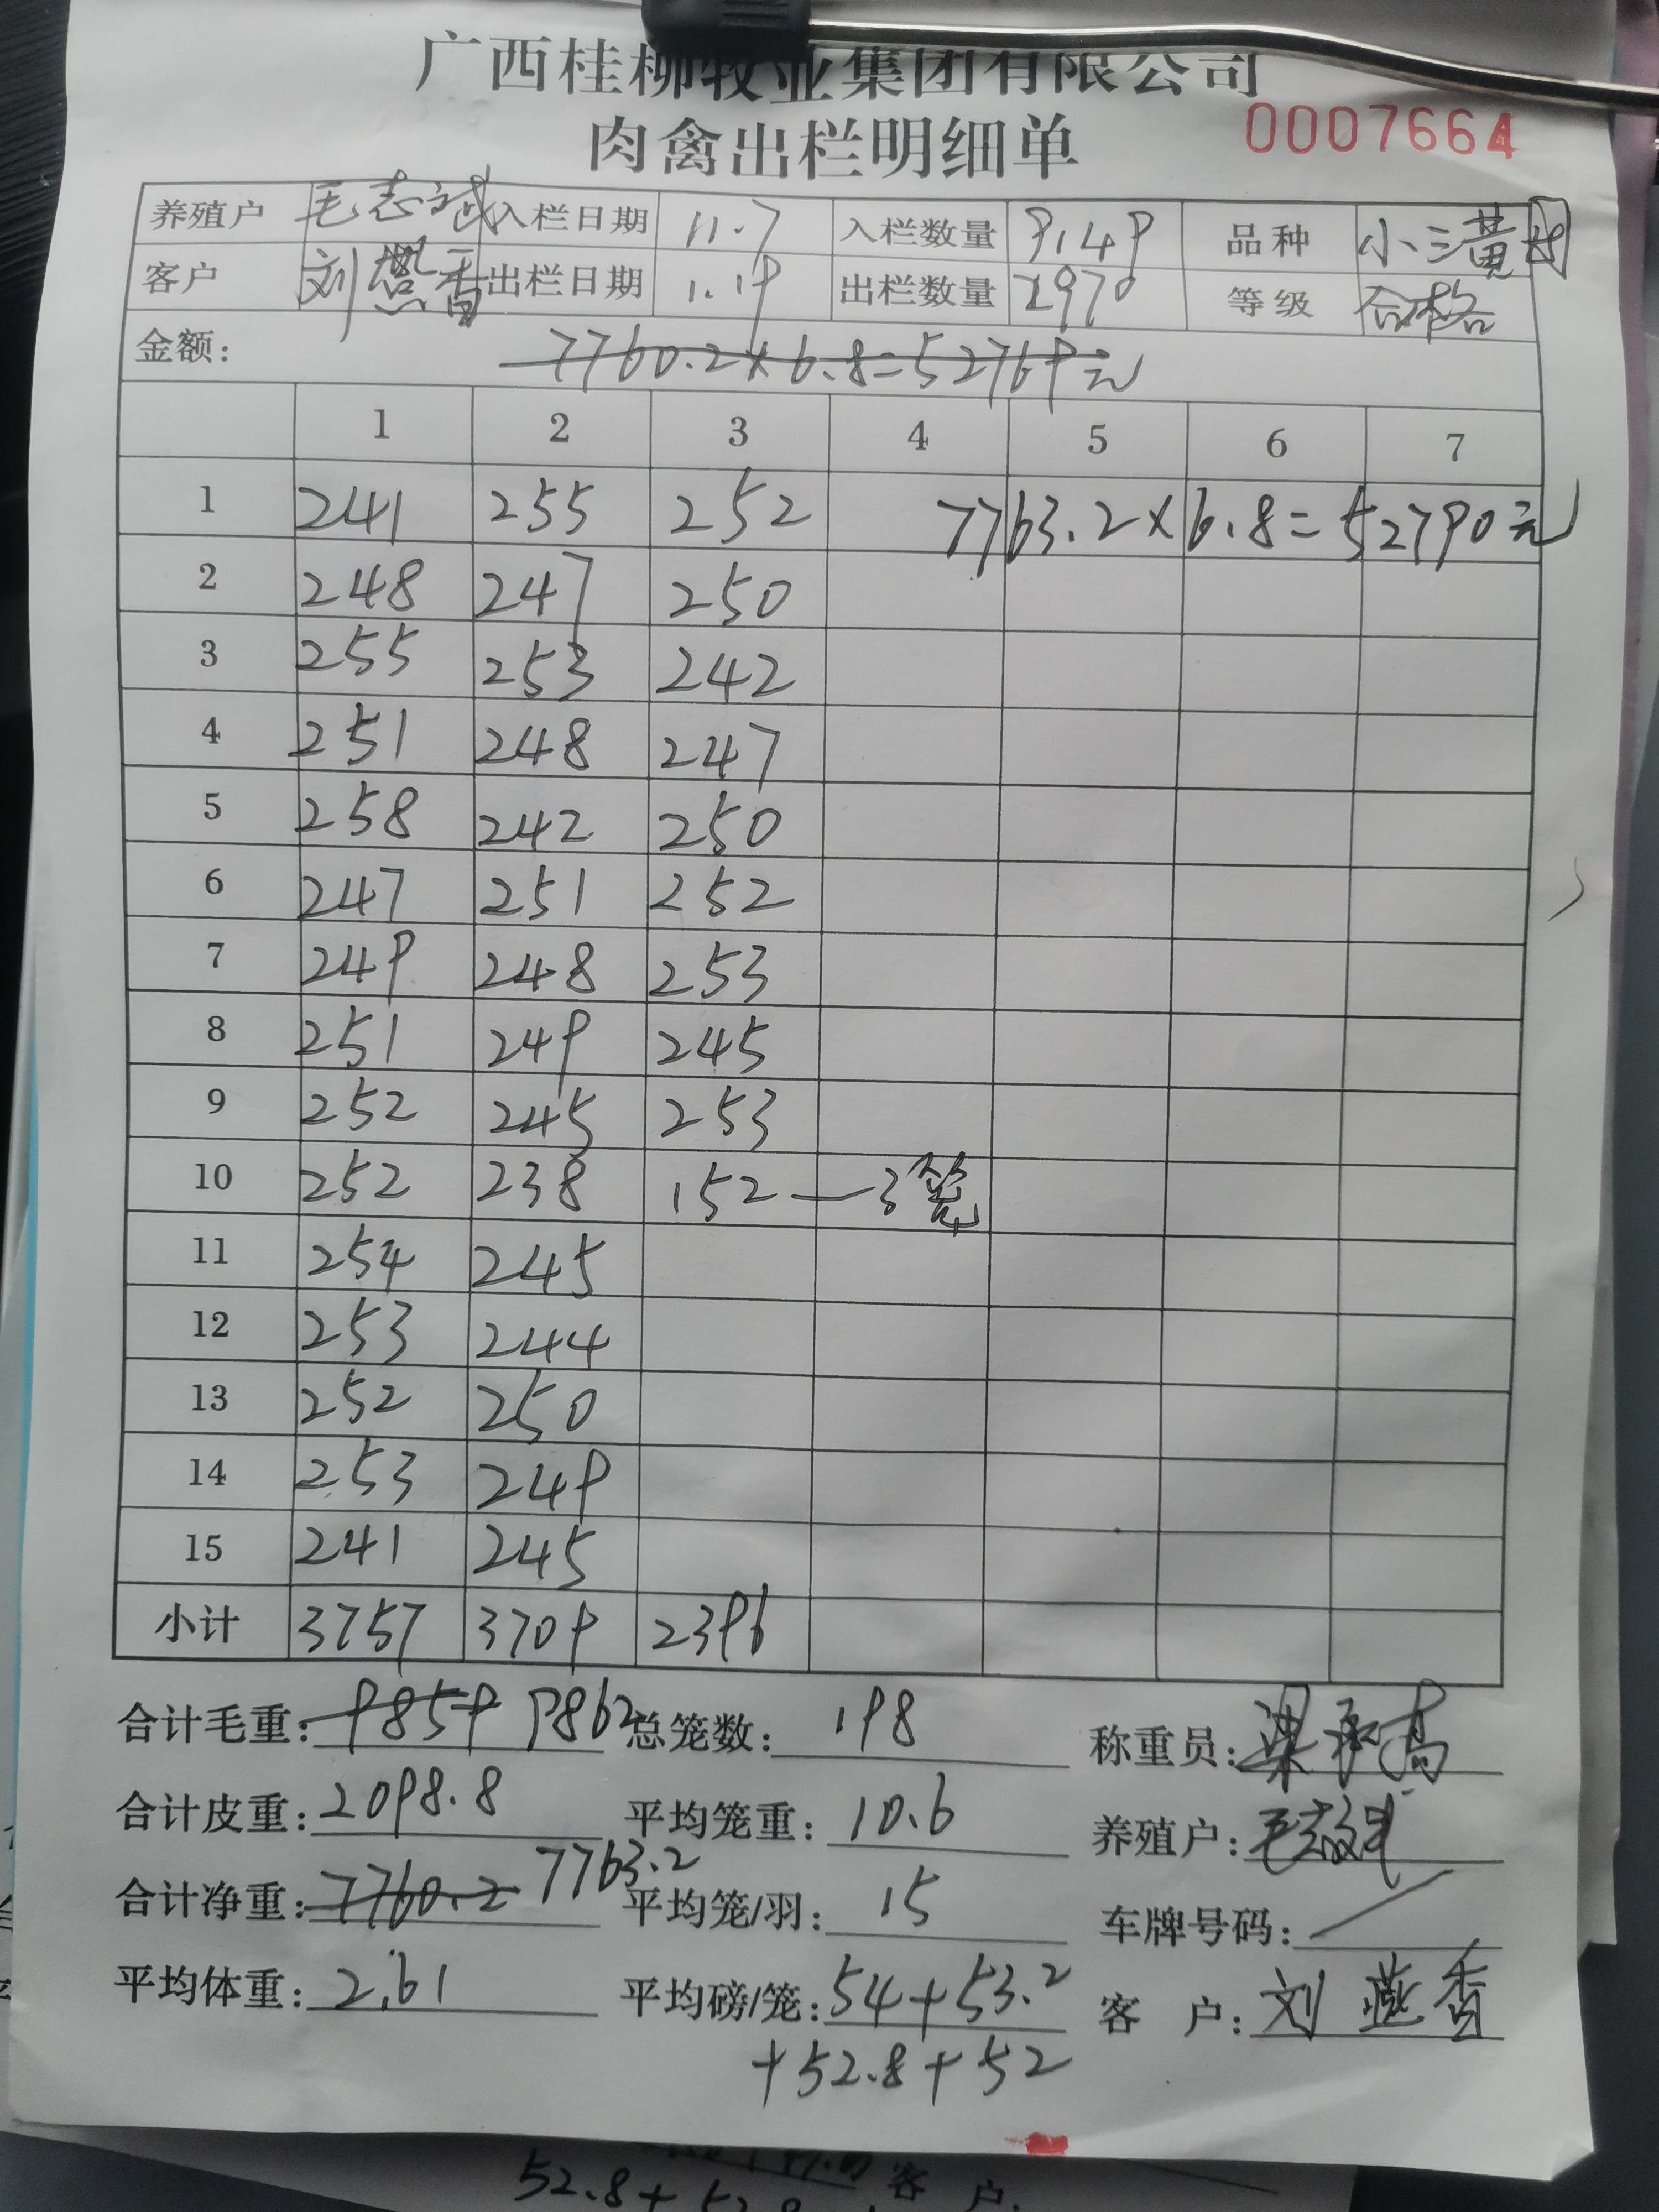 广西桂柳牧业集团有限公司
肉禽出栏明细单
0007664
养殖户 毛志斌 入栏日期 11.7 入栏数量 9149 品种 小三黄
客户 刘燕香 出栏日期 1.19 出栏数量 2970 等级 合格
金额: 7760.2×6.8=52769元
1 2 3 4 5 6 7
1 241 255 252 7763.2×6.8=52790元
2 248 247 250
3 255 253 242
4 251 248 247
5 258 242 250
6 247 251 252
7 249 248 253
8 251 249 245
9 252 245 253
10 252 238 152—3笼
11 254 245
12 253 244
13 252 250
14 253 249
15 241 245
小计 3757 3709 2396
合计毛重: 9859 9862 总笼数: 198 称重员:
合计皮重: 2098.8 平均笼重: 10.6 养殖户: 毛志斌
合计净重: 7760.2 7763.2 平均笼/羽: 15 车牌号码: /
平均体重: 2.61 平均磅/笼: 54+53.2 客户: 刘燕香
+52.8+52
客户:
52.8+52.8